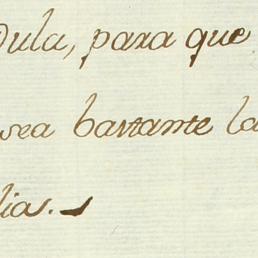 dula, para que
sea bastante la
lias.